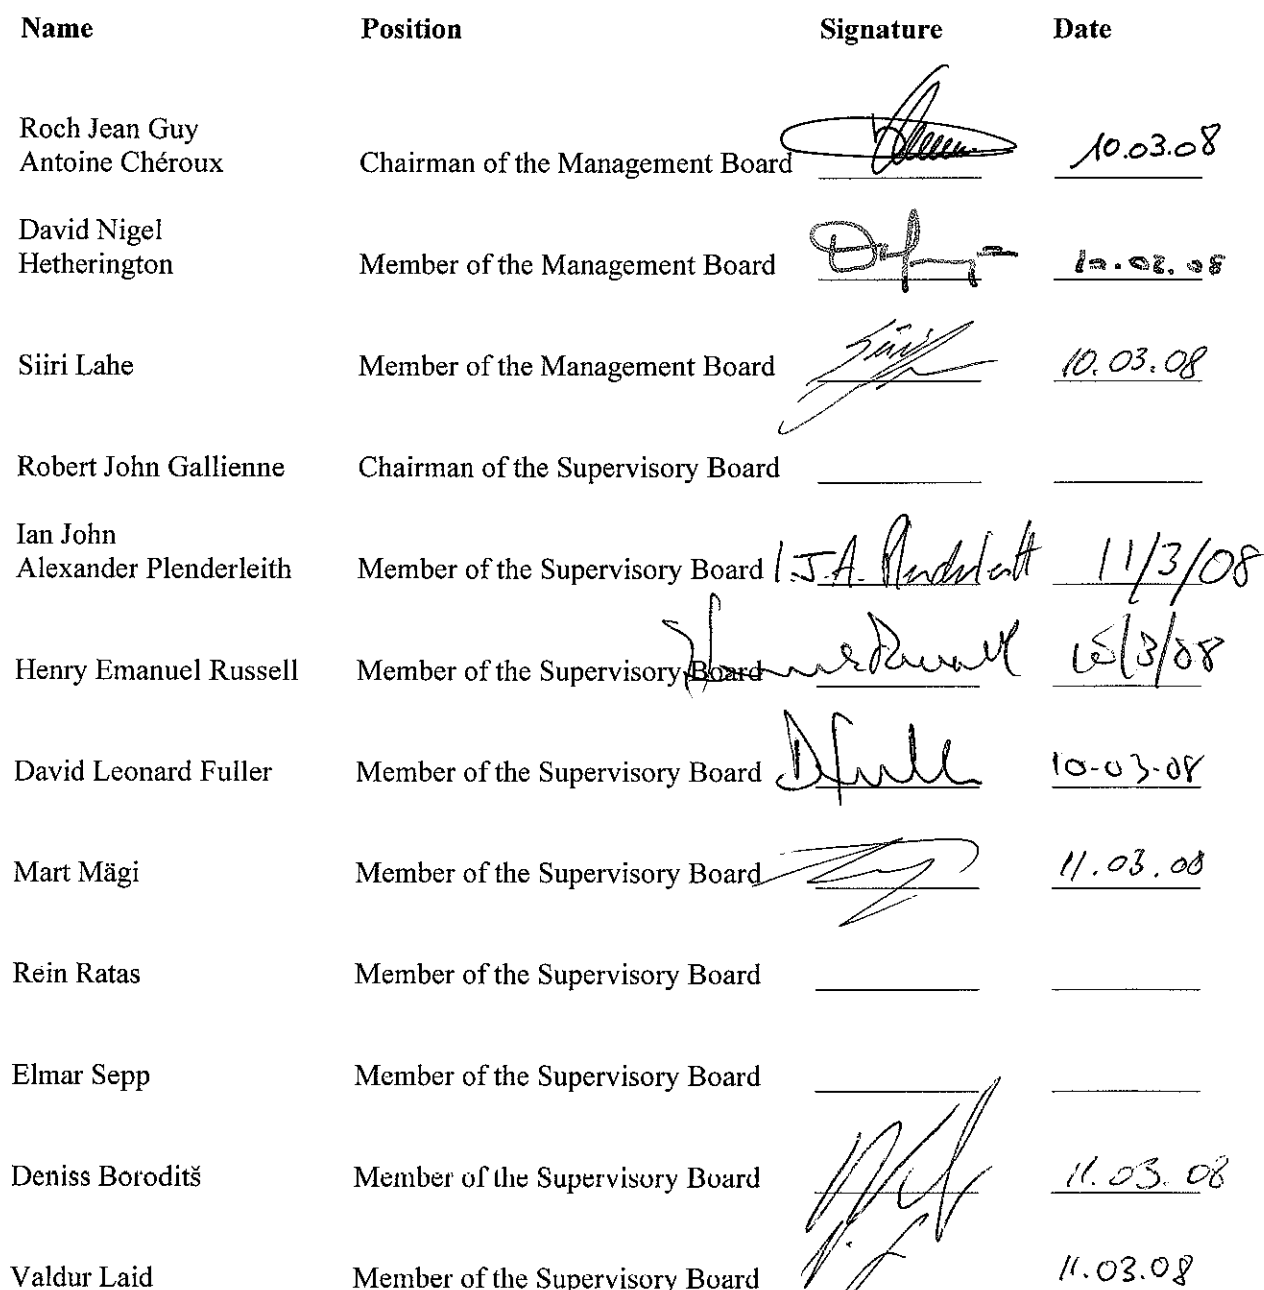 Name Position Signature Date
Roch Jean Guy
Antoine Chéroux Chairman of the Management Board 10.03.08
David Nigel
Hetherington Member of the Management Board
Siiri Lahe Member of the Management Board Siiri 10.03.08
Robert John Gallienne Chairman of the Supervisory Board
Ian John
Alexander Plenderleith Member of the Supervisory Board I.J.A. Plenderleith 11/3/08
Henry Emanuel Russell Member of the Supervisory Board
David Leonard Fuller Member of the Supervisory Board D Fuller 10-03-08
Mart Mägi Member of the Supervisory Board 11.03.08
Rein Ratas Member of the Supervisory Board
Elmar Sepp Member of the Supervisory Board
Deniss Boroditš Member of the Supervisory Board 11.03.08
Valdur Laid Member of the Supervisory Board 11.03.08